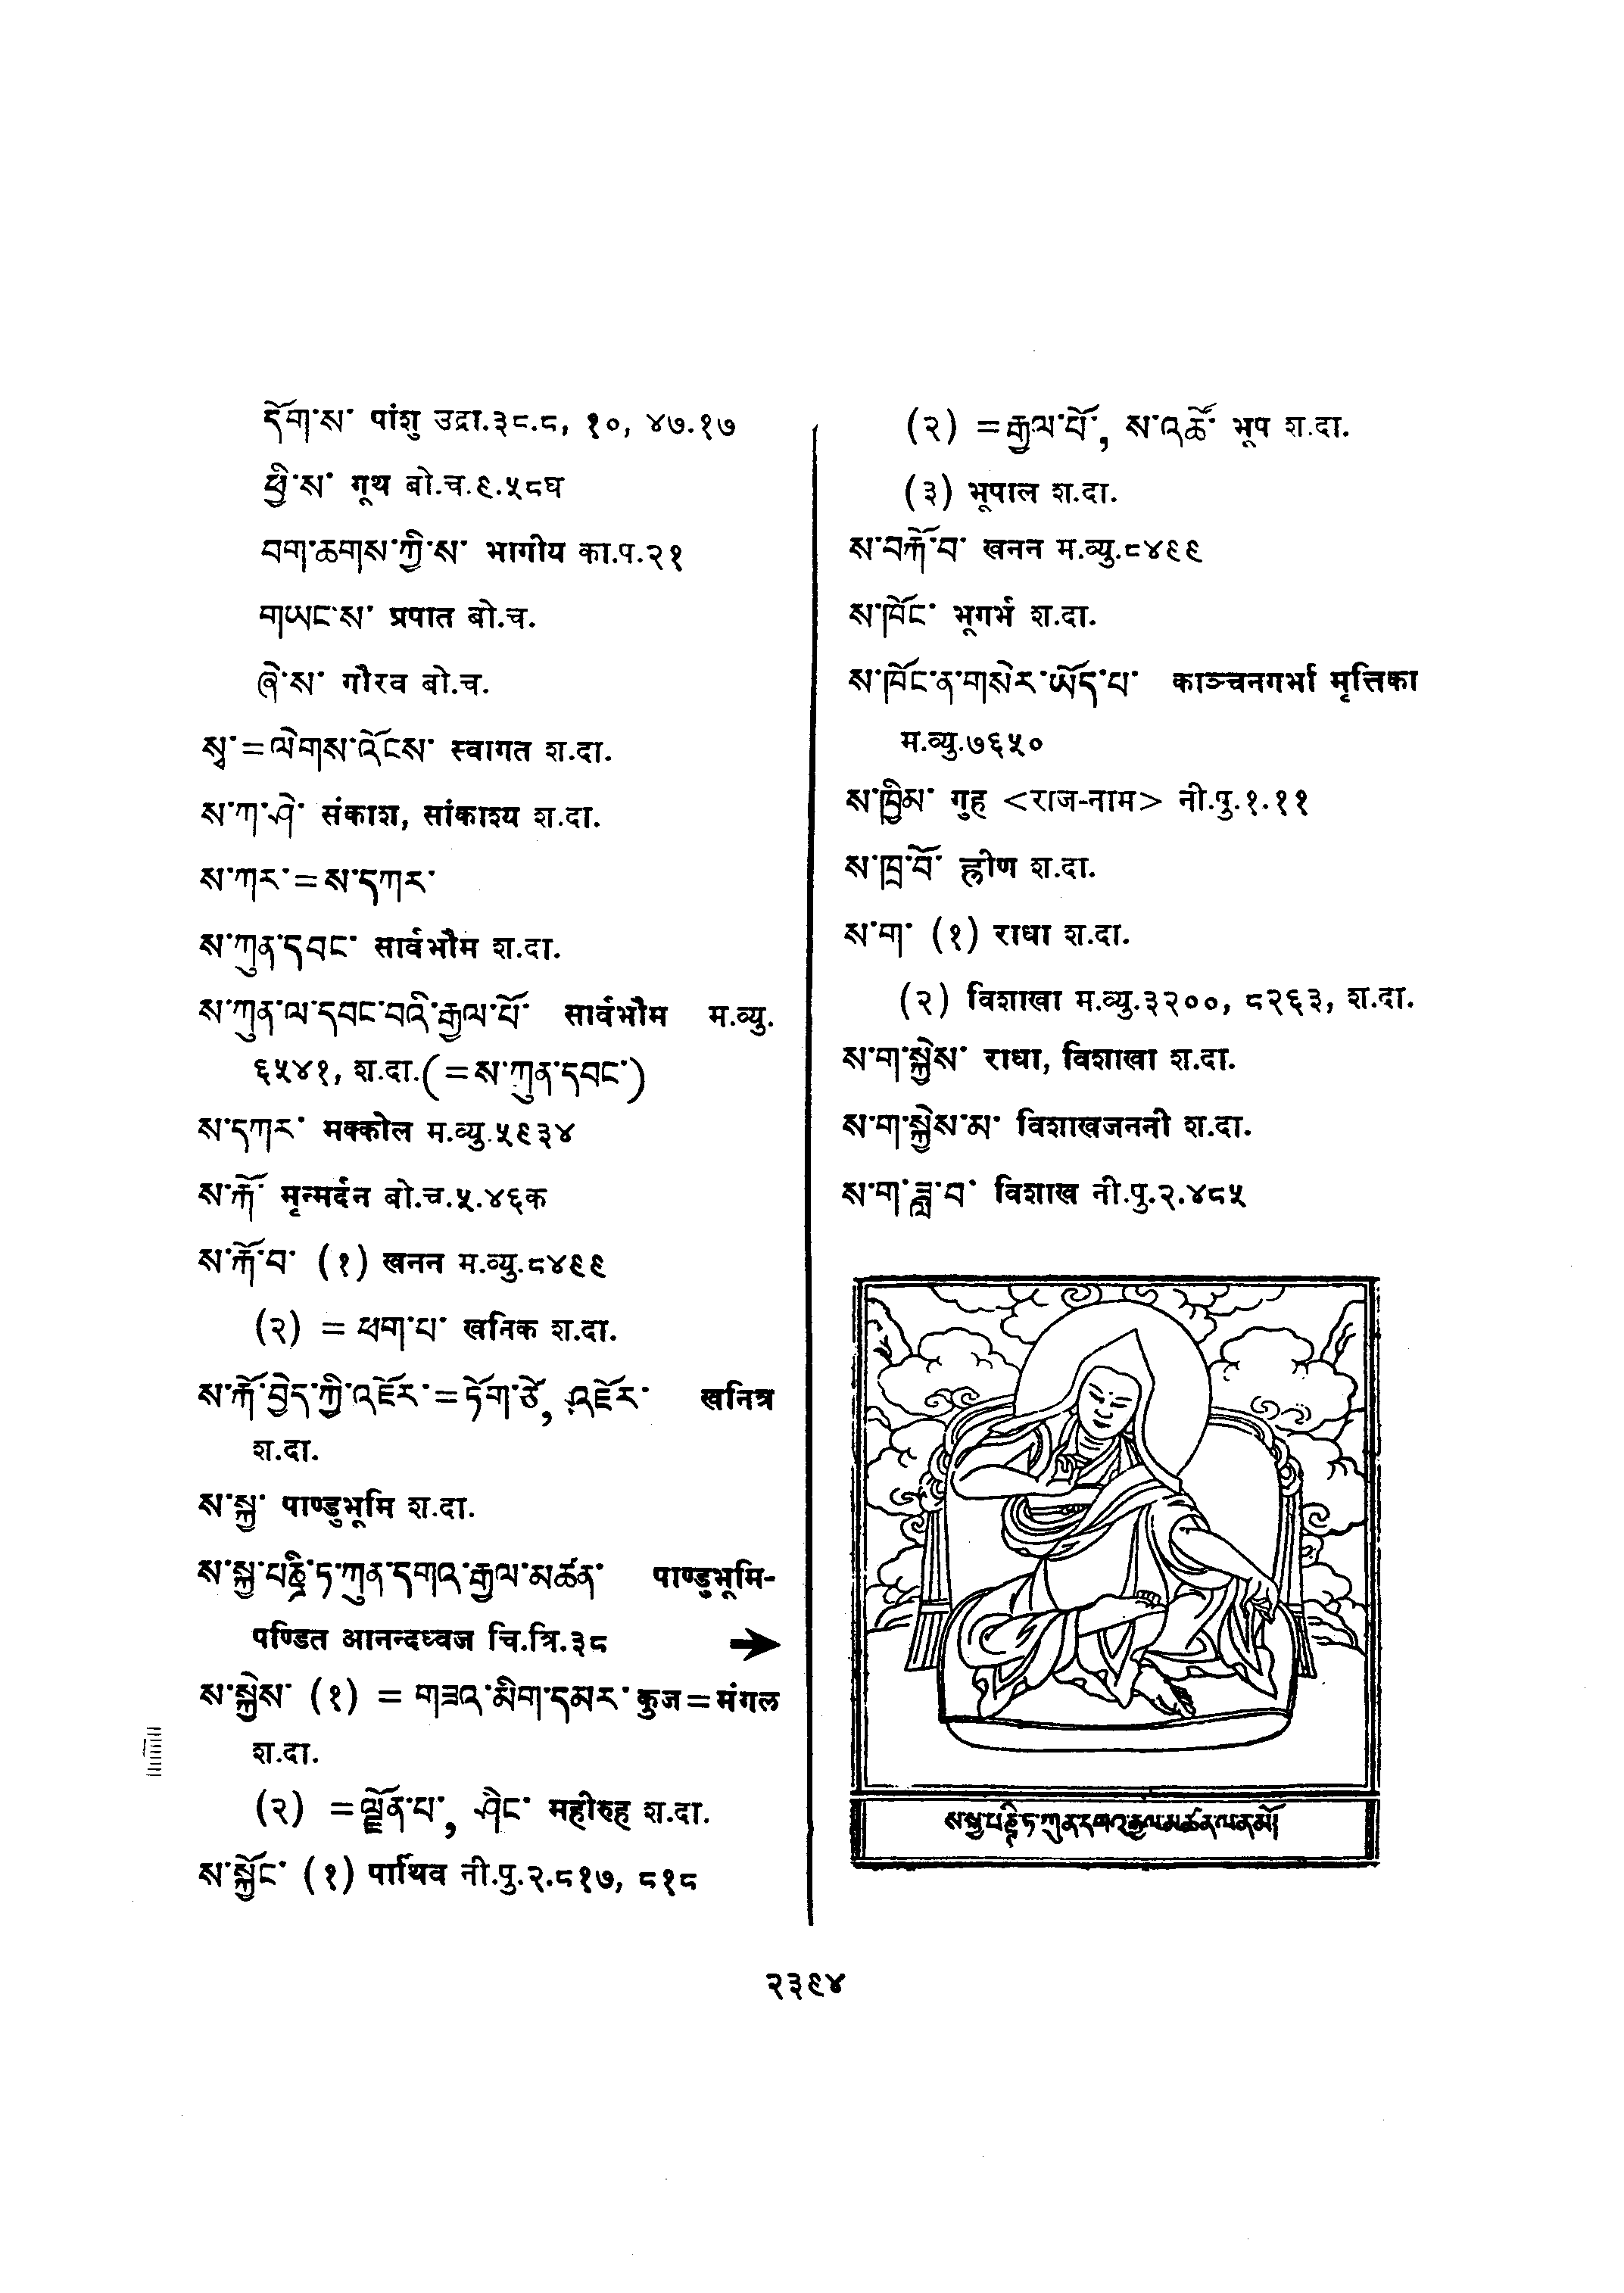 དོག་ས་ पांशु उद्रा.३८.८, १०, ४७.१७
ཕྱི་ས་ गूथ बो.च.९.५८घ
བག་ཆགས་ཀྱི་ས་ भागीय का.प.२१
གཡང་ས་ प्रपात बो.च.
ཞེ་ས་ गौरव बो.च.
སྭ་=ལེགས་འོངས་ स्वागत श.दा.
ས་ཀ་ཤེ་ संकाश, सांकाश्य श.दा.
ས་ཀར་=ས་དཀར་
ས་ཀུན་དབང་ सार्वभौम श.दा.
ས་ཀུན་ལ་དབང་བའི་རྒྱལ་པོ་ सार्वभौम म.व्यु.
६५४१, श.दा.(=ས་ཀུན་དབང་)
ས་དཀར་ मक्कोल म.व्यु.५९३४
ས་རྐོ་ मृन्मर्दन बो.च.५.४६क
ས་རྐོ་བ་ (१) खनन म.व्यु.८४९९
(२) = ཕག་པ་ खनिक श.दा.
ས་རྐོ་བྱེད་ཀྱི་འཇོར་=ཏོག་ཙེ, འཇོར་ खनित्र
श.दा.
ས་སྐྱ་ पाण्डुभूमि श.दा.
ས་སྐྱ་པཎྜི་ཏ་ཀུན་དགའ་རྒྱལ་མཚན་ पाण्डुभूमि-
पण्डित आनन्दध्वज चि.त्रि.३८ ➔
ས་སྐྱེས་ (१) = གཟའ་མིག་དམར་ कुज=मंगल
श.दा.
(२) =ལྗོན་པ་, ཤིང་ महीरुह श.दा.
ས་སྐྱོང་ (१) पार्थिव नी.पु.२.८१७, ८१८
(२) =རྒྱལ་པོ་, ས་འཚོ་ भूप श.दा.
(३) भूपाल श.दा.
ས་བརྐོ་བ་ खनन म.व्यु.८४९९
ས་ཁོང་ भूगर्भ श.दा.
ས་ཁོང་ན་གསེར་ཡོད་པ་ काञ्चनगर्भा मृत्तिका
म.व्यु.७६५०
ས་ཁྱིམ་ गुह <राज-नाम> नी.पु.१.११
ས་ཁྲ་བོ་ ह्रीण श.दा.
ས་ག་ (१) राधा श.दा.
(२) विशाखा म.व्यु.३२००, ८२६३, श.दा.
ས་ག་སྐྱེས་ राधा, विशाखा श.दा.
ས་ག་སྐྱེས་མ་ विशाखजननी श.दा.
ས་ག་ཟླ་བ་ विशाख नी.पु.२.४८५
ས་སྐྱ་པཎྜི་ཏ་ཀུན་དགའ་རྒྱལ་མཚན་ལ་ན་མོ།
२३९४